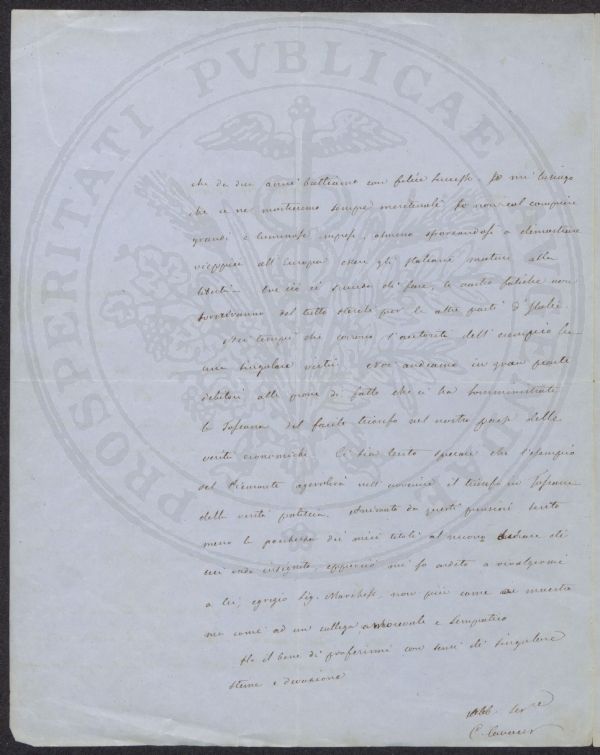 PROSPERITATI PVBLICAE AVGENDAE
che da due anni battiamo con felice successo. Io mi lusingo
che ce ne mostreremo sempre meritevoli se non col compiere
grandi e luminose imprese, almeno sforzandosi a dimostrare
vieppiù all'Europa essere gli Italiani maturi alla
libertà. Ove ciò ci riesca di fare, le nostre fatiche non
saranno del tutto sterili per le altre parti d'Italia.
Nei tempi che corrono l'autorità dell'esempio ha
una singolare virtù. Noi andiamo in gran parte
debitori alle prove di fatto che ci ha somministrate
la Toscana del facile trionfo nel nostro paese delle
verità economiche. Ci sia lecito sperare che l'esempio
del Piemonte agevolerà nell'avvenire il trionfo in Toscana
della verità politica. Animato da questi pensieri sento
meno la pochezza dei miei titoli al nuovo
ond' insignito, epperciò mi fo ardito a rivolgermi
a lei, egregio Sig. Marchese, non più come a maestro
ma come ad un collega amorevole e simpatico
Ho il bene di profferirmi con sensi di singolare
stima e devozione
Obb. Ser.re
C. Cavour